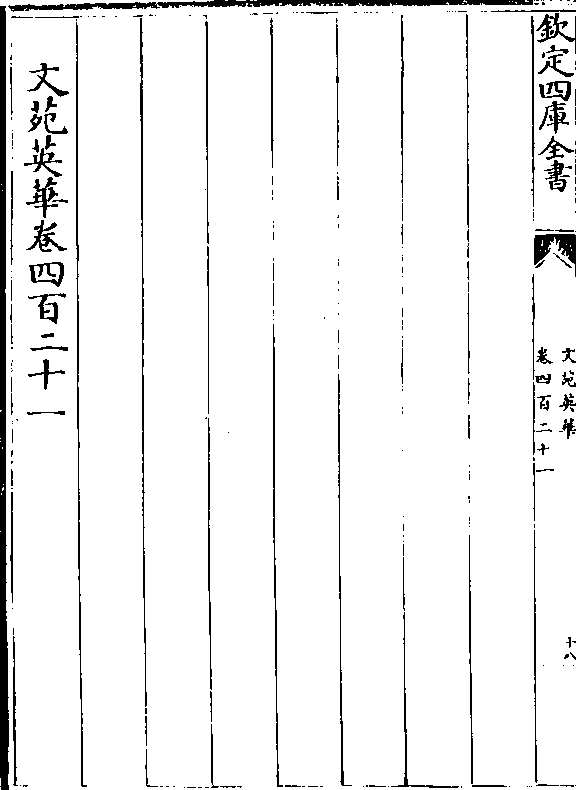 欽定四庫全書
文苑英華
卷四百二十一
十八
文苑英華卷四百二十一